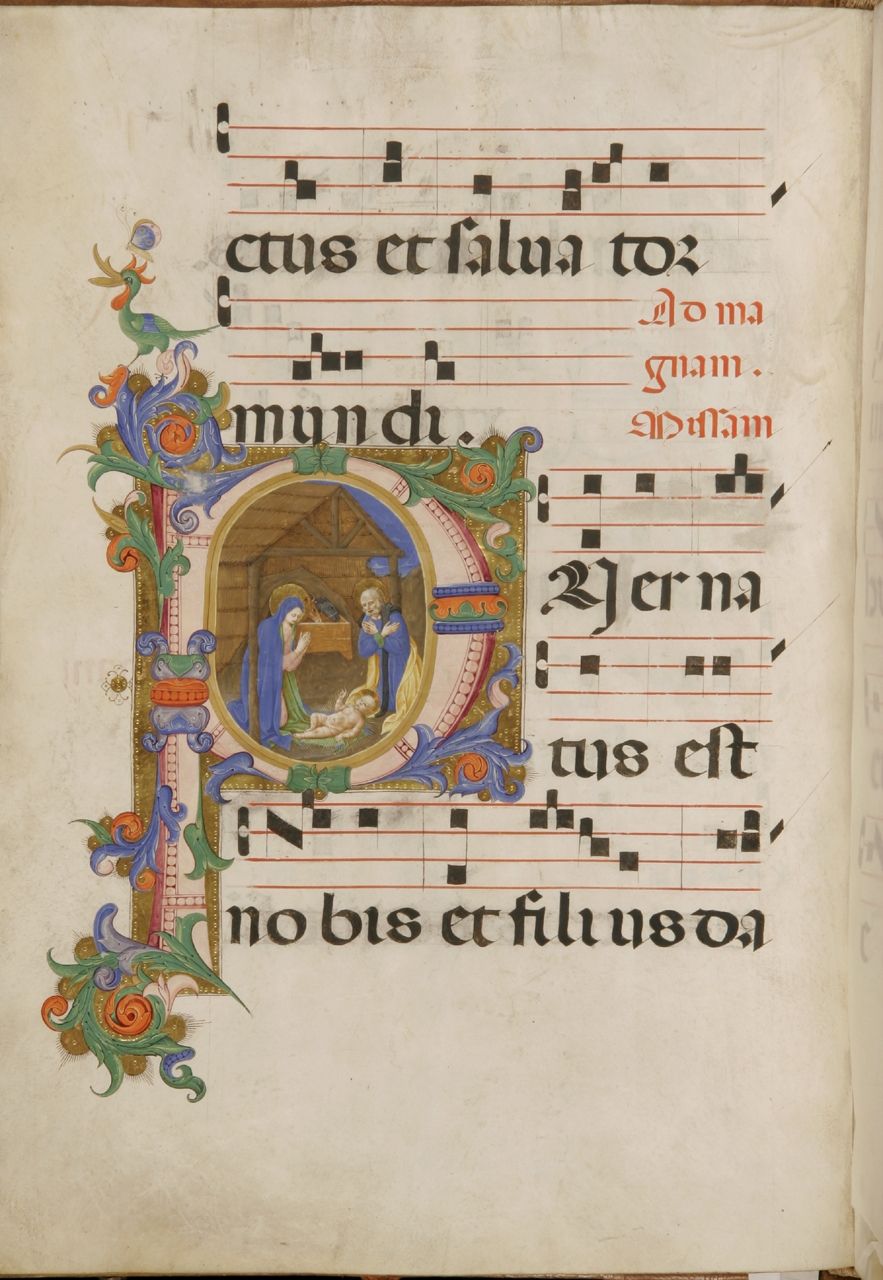 ctus et salua tor
Ad ma
gnam.
mundi.
Missam
PUer na
tus est
no bis et fili us da